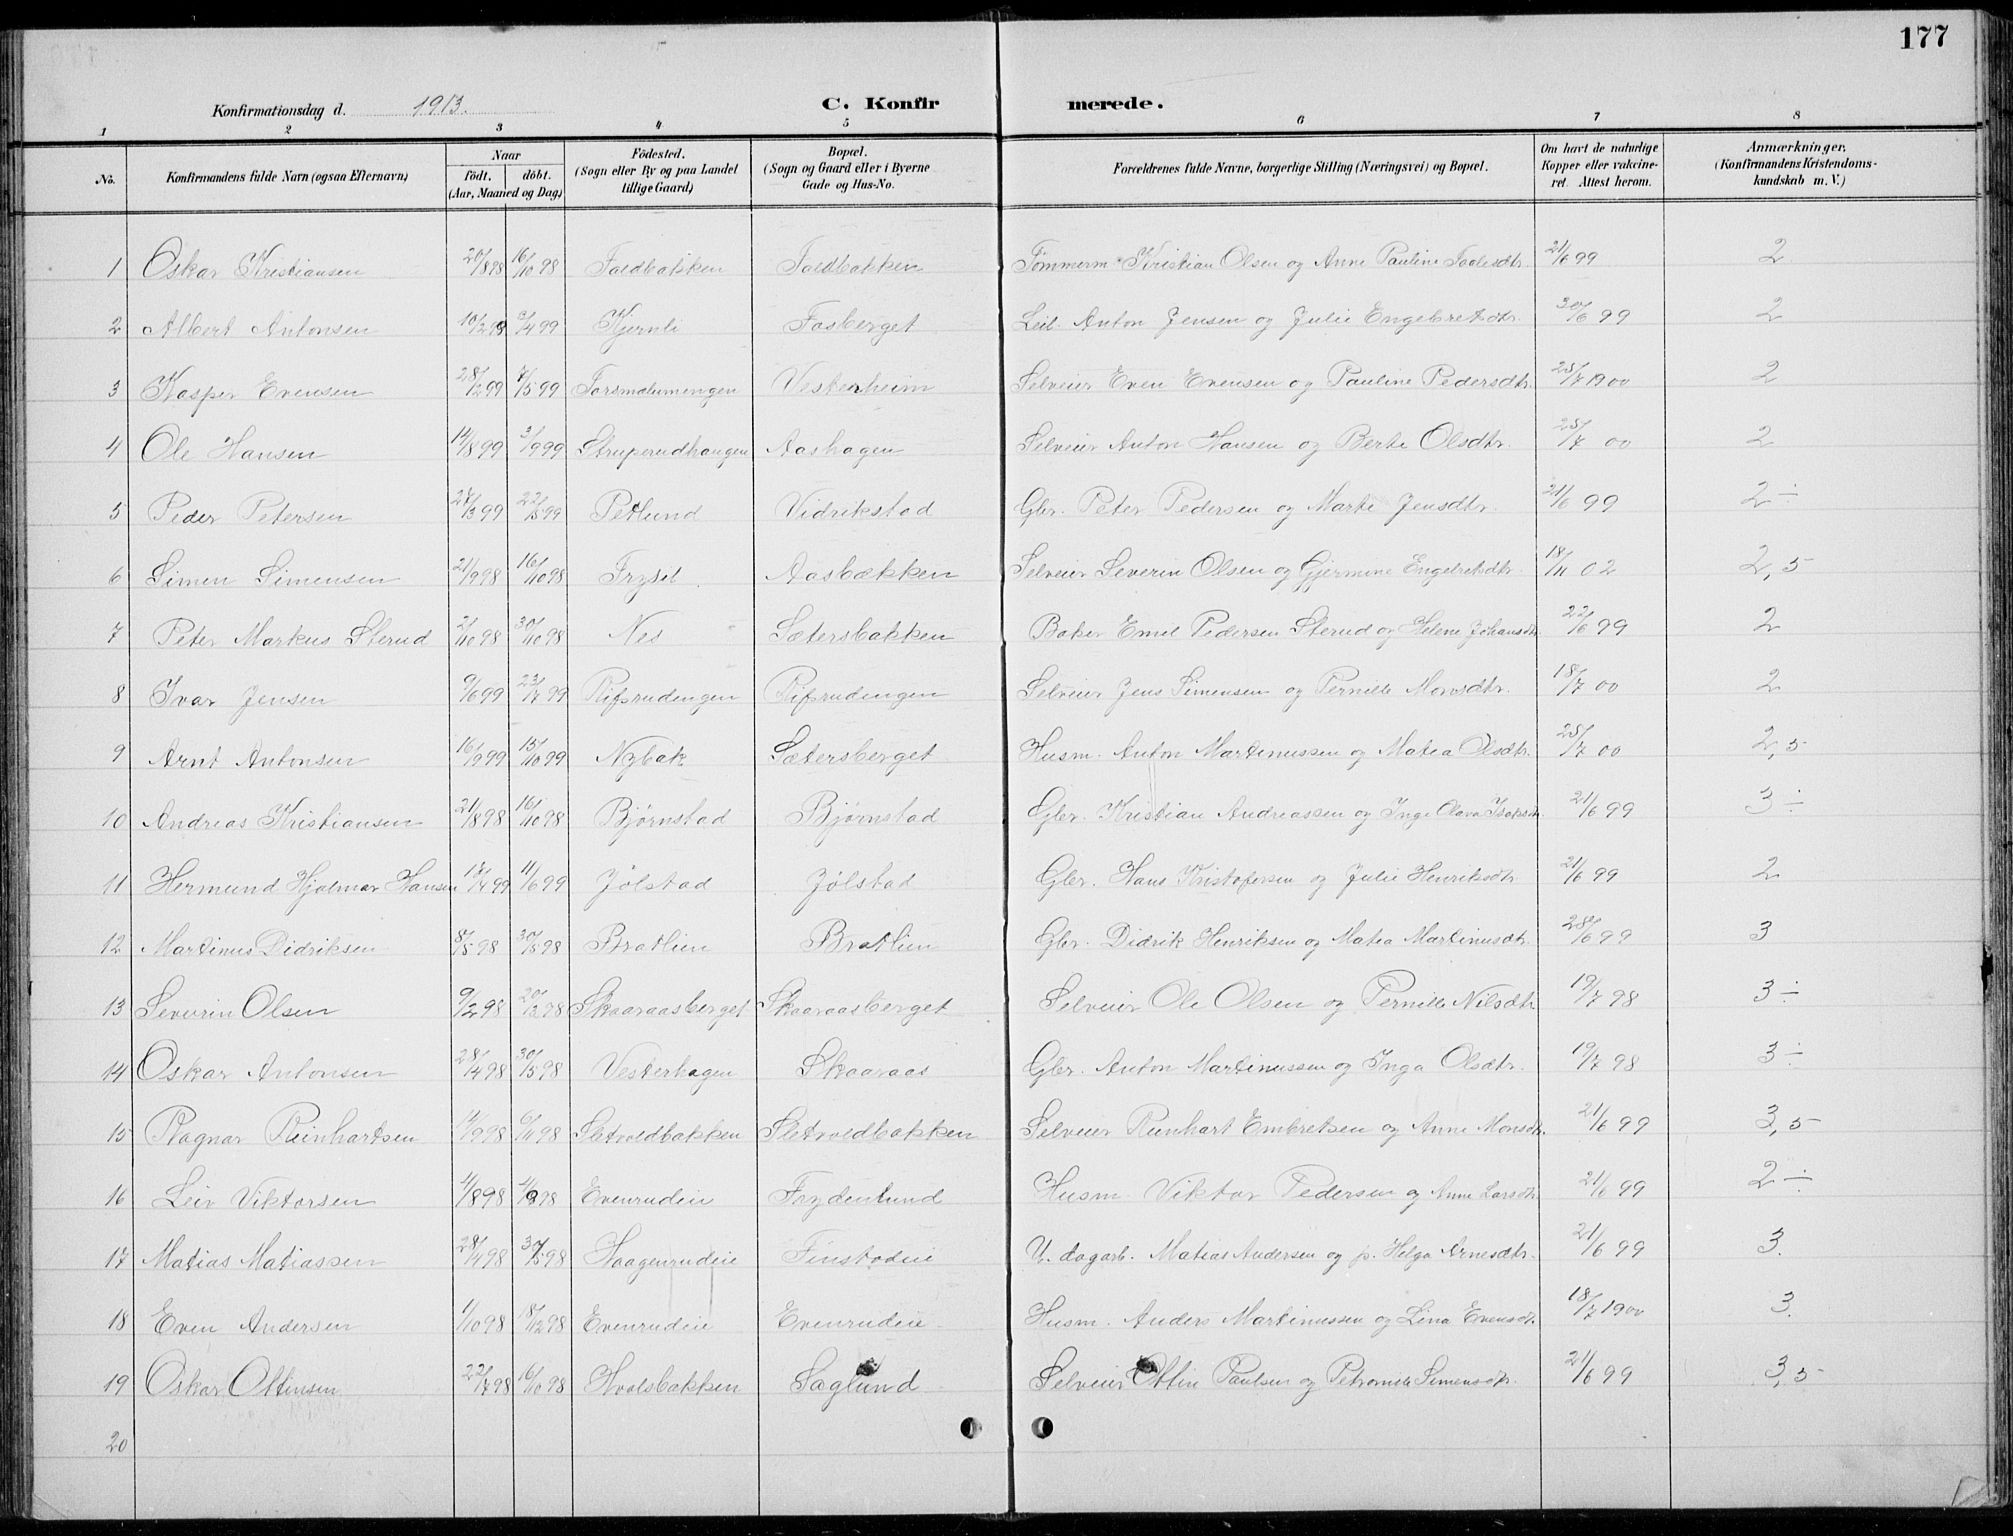 177
Konfirmationsdag d. 1913. C. Konfirmerede.
1 2 3 4 5 6 7 8
No. Konfirmandens fulde Navn (ogsaa Efternavn) Naar Født. døbt. (Aar, Maaned og Dag) Fødested. (Sogn eller By og paa Landet tillige Gaard) Bopæl. (Sogn og Gaard eller i Byerne Gade og Hus-No. Forældrenes fulde Navne, borgerlige Stilling (Næringsvei) og Bopæl. Om havt de naturlige Kopper eller vakcineret. Attest herom. Anmærkninger. (Konfirmandens Kristendomskundskab m. V.)
1 Oskar Kristiansen 20/8 98 16/10 98 Faldbakken Faldbakken Tømmerm. Kristian Olsen og Anne Pauline 21/6 99 2
2 Albert Antonsen 10/2 99 3/4 99 Kjernli Fasberget Leil. Anton Jensen og Julie Engebretsdtr. 30/6 99 2
3 Kasper Evensen 28/2 99 7/5 99 Vesterheim Selveier Even Evensen og Pauline Pedersdtr. 25/7 1900 2
4 Ole Hansen 14/8 99 3/9 99 Struperudhaugen Aashagen Selveier Anton Hansen og Berte Olsdtr. 25/7 00 2
5 Peder Petersen 27/3 99 22/5 99 Petlund Vidrikstad Gbr. Peter Pedersen og Marte Jensdtr. 21/6 99 2 ÷
6 Simen Simensen 21/9 98 16/10 98 Trysil Aasbækken Selveier Severin Olsen og Gjermine Engebretsdtr. 18/11 02 2,5
7 Peter Markus Sterud 2/10 98 30/10 98 Nes Sætersbakken Baker Emil Pedersen Sterud og Helene Johansdtr. 22/6 99 2
8 Ivar Jensen 9/6 99 23/7 99 Rifsrudengen Rifsrudengen Selveier Jens Simensen og Pernille Monsdtr. 18/7 00 2
9 Arnt Antonsen 16/9 99 15/10 99 Nybak Sætersberget Husm. Anton Martinussen og Matea Olsdtr. 25/7 00 2,5
10 Andreas Kristiansen 21/8 98 16/10 98 Bjørnstad Bjørnstad Gbr. Kristian Andreassen og Inge Olava Isaksdtr. 21/6 99 3 ÷
11 Hermund Hjalmar Hansen 17/4 99 11/6 99 Jølstad Jølstad Gbr. Hans Kristofersen og Julie Henriksdtr. 21/6 99 2
12 Martinus Didriksen 8/5 98 30/5 98 Bratlien Bratlien Gbr. Didrik Henriksen og Matea Martinusdtr. 28/6 99 3
13 Severin Olsen 9/2 98 20/3 98 Skaaraasberget Skaaraasberget Selveier Ole Olsen og Pernille Nilsdtr. 19/7 98 3 ÷
14 Oskar Antonsen 28/4 98 30/5 98 Vesterhagen Skaaraas Gbr. Anton Martinussen og Inga Olsdtr. 19/7 98 3 ÷
15 Ragnar Reinhartsen 14/9 98 6/11 98 Sletvoldbakken Sletvoldbakken Selveier Reinhart Embretsen og Anne Monsdtr. 21/6 99 3,5
16 Leiv Viktorsen 4/8 98 98 Evenrudeie Frydenlund Husm. Viktor Pedersen og Anne Larsdtr. 21/6 99 2 ÷
17 Matias Matiassen 28/4 98 30/5 98 Haagenrudeie Finstadeie U. dagarb. Matias Andersen og p. Helga Arnesdtr. 21/6 99 3.
18 Even Andersen 1/10 98 18/12 98 Evenrudeie Evenrudeie Husm. Anders Martinussen og Lina Evensdtr. 18/7 1900 3.
19 Oskar Ottinsen 22/7 98 16/10 98 Hvalsbakken Saglund Selveier Ottin Paulsen og Petronelle Simensdtr. 21/6 99 3,5
20